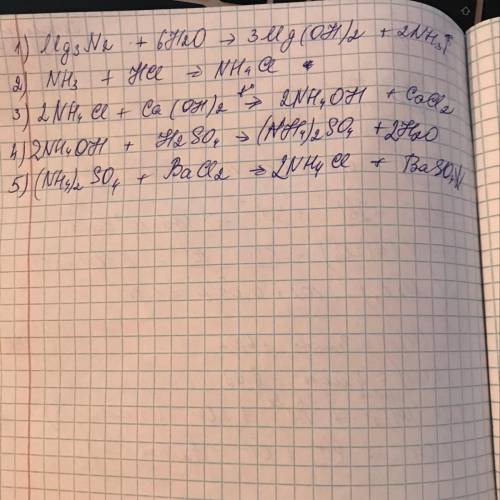 1) Mg3N2 + 6H2O → 3Mg(OH)2 + 2NH3↑
2) NH3 + HCl → NH4Cl
3) 2NH4Cl + Ca(OH)2 t°→ 2NH4OH + CaCl2
4) 2NH4OH + H2SO4 → (NH4)2SO4 + 2H2O
5) (NH4)2SO4 + BaCl2 → 2NH4Cl + BaSO4↓